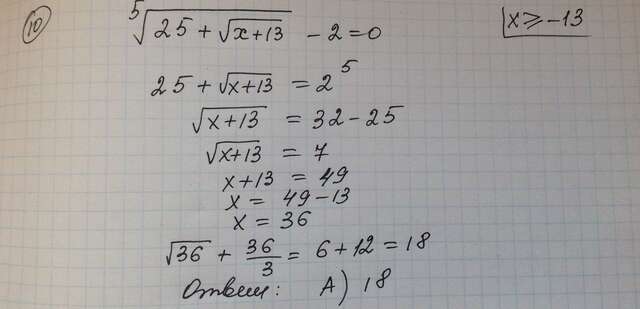 10 ⁵√(25 + √(x+13)) - 2 = 0 x ≥ -13
25 + √(x+13) = 2⁵
√(x+13) = 32 - 25
√(x+13) = 7
x + 13 = 49
x = 49 - 13
x = 36
√36 + 36/3 = 6 + 12 = 18
Ответ: А) 18